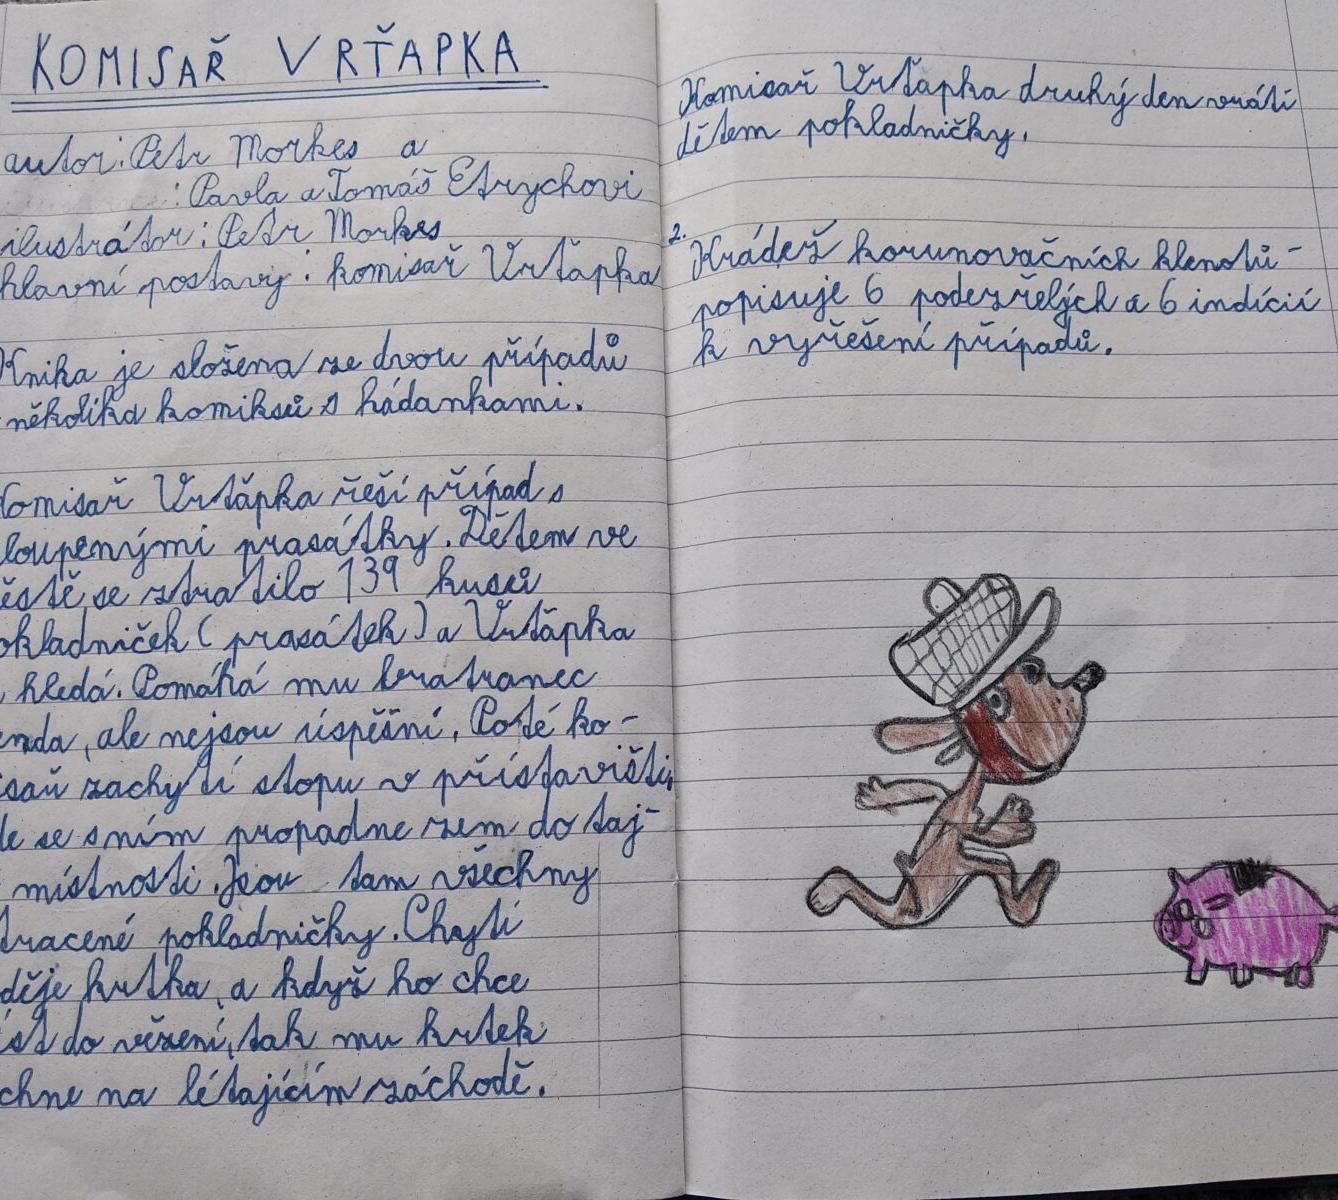 KOMISAŘ VRŤAPKA
autor: Petr Morkes a
: Pavla a Tomáš Etrychovi
ilustrátor: Petr Morkes
hlavní postavy: komisař Vrťapka
Knika je složena ze dvou případů
několika komiksů s hádankami.
Komisař Vrťapka řeší případ s
loupenými prasátky. Dětem ve
ěstě se ztratilo 139 kusů
okladniček (prasátek) a Vrťapka
, hledá. Pomáhá mu bratranec
enda, ale nejsou úspěšní. Poté ko-
isař zachytí stopu v přístavišti,
de se s ním propadne zem do taj-
místnosti. Jsou tam všechny
tracené pokladničky. Chytí
děje krtka, a když ho chce
ést do vězení, tak mu krtek
chne na létajícím záchodě.
Komisař Vrťapka druhý den vrátí
dětem pokladničky.
2. Krádež korunovačních klenotů-
popisuje 6 podezřelých a 6 indícií
k vyřešení případů.